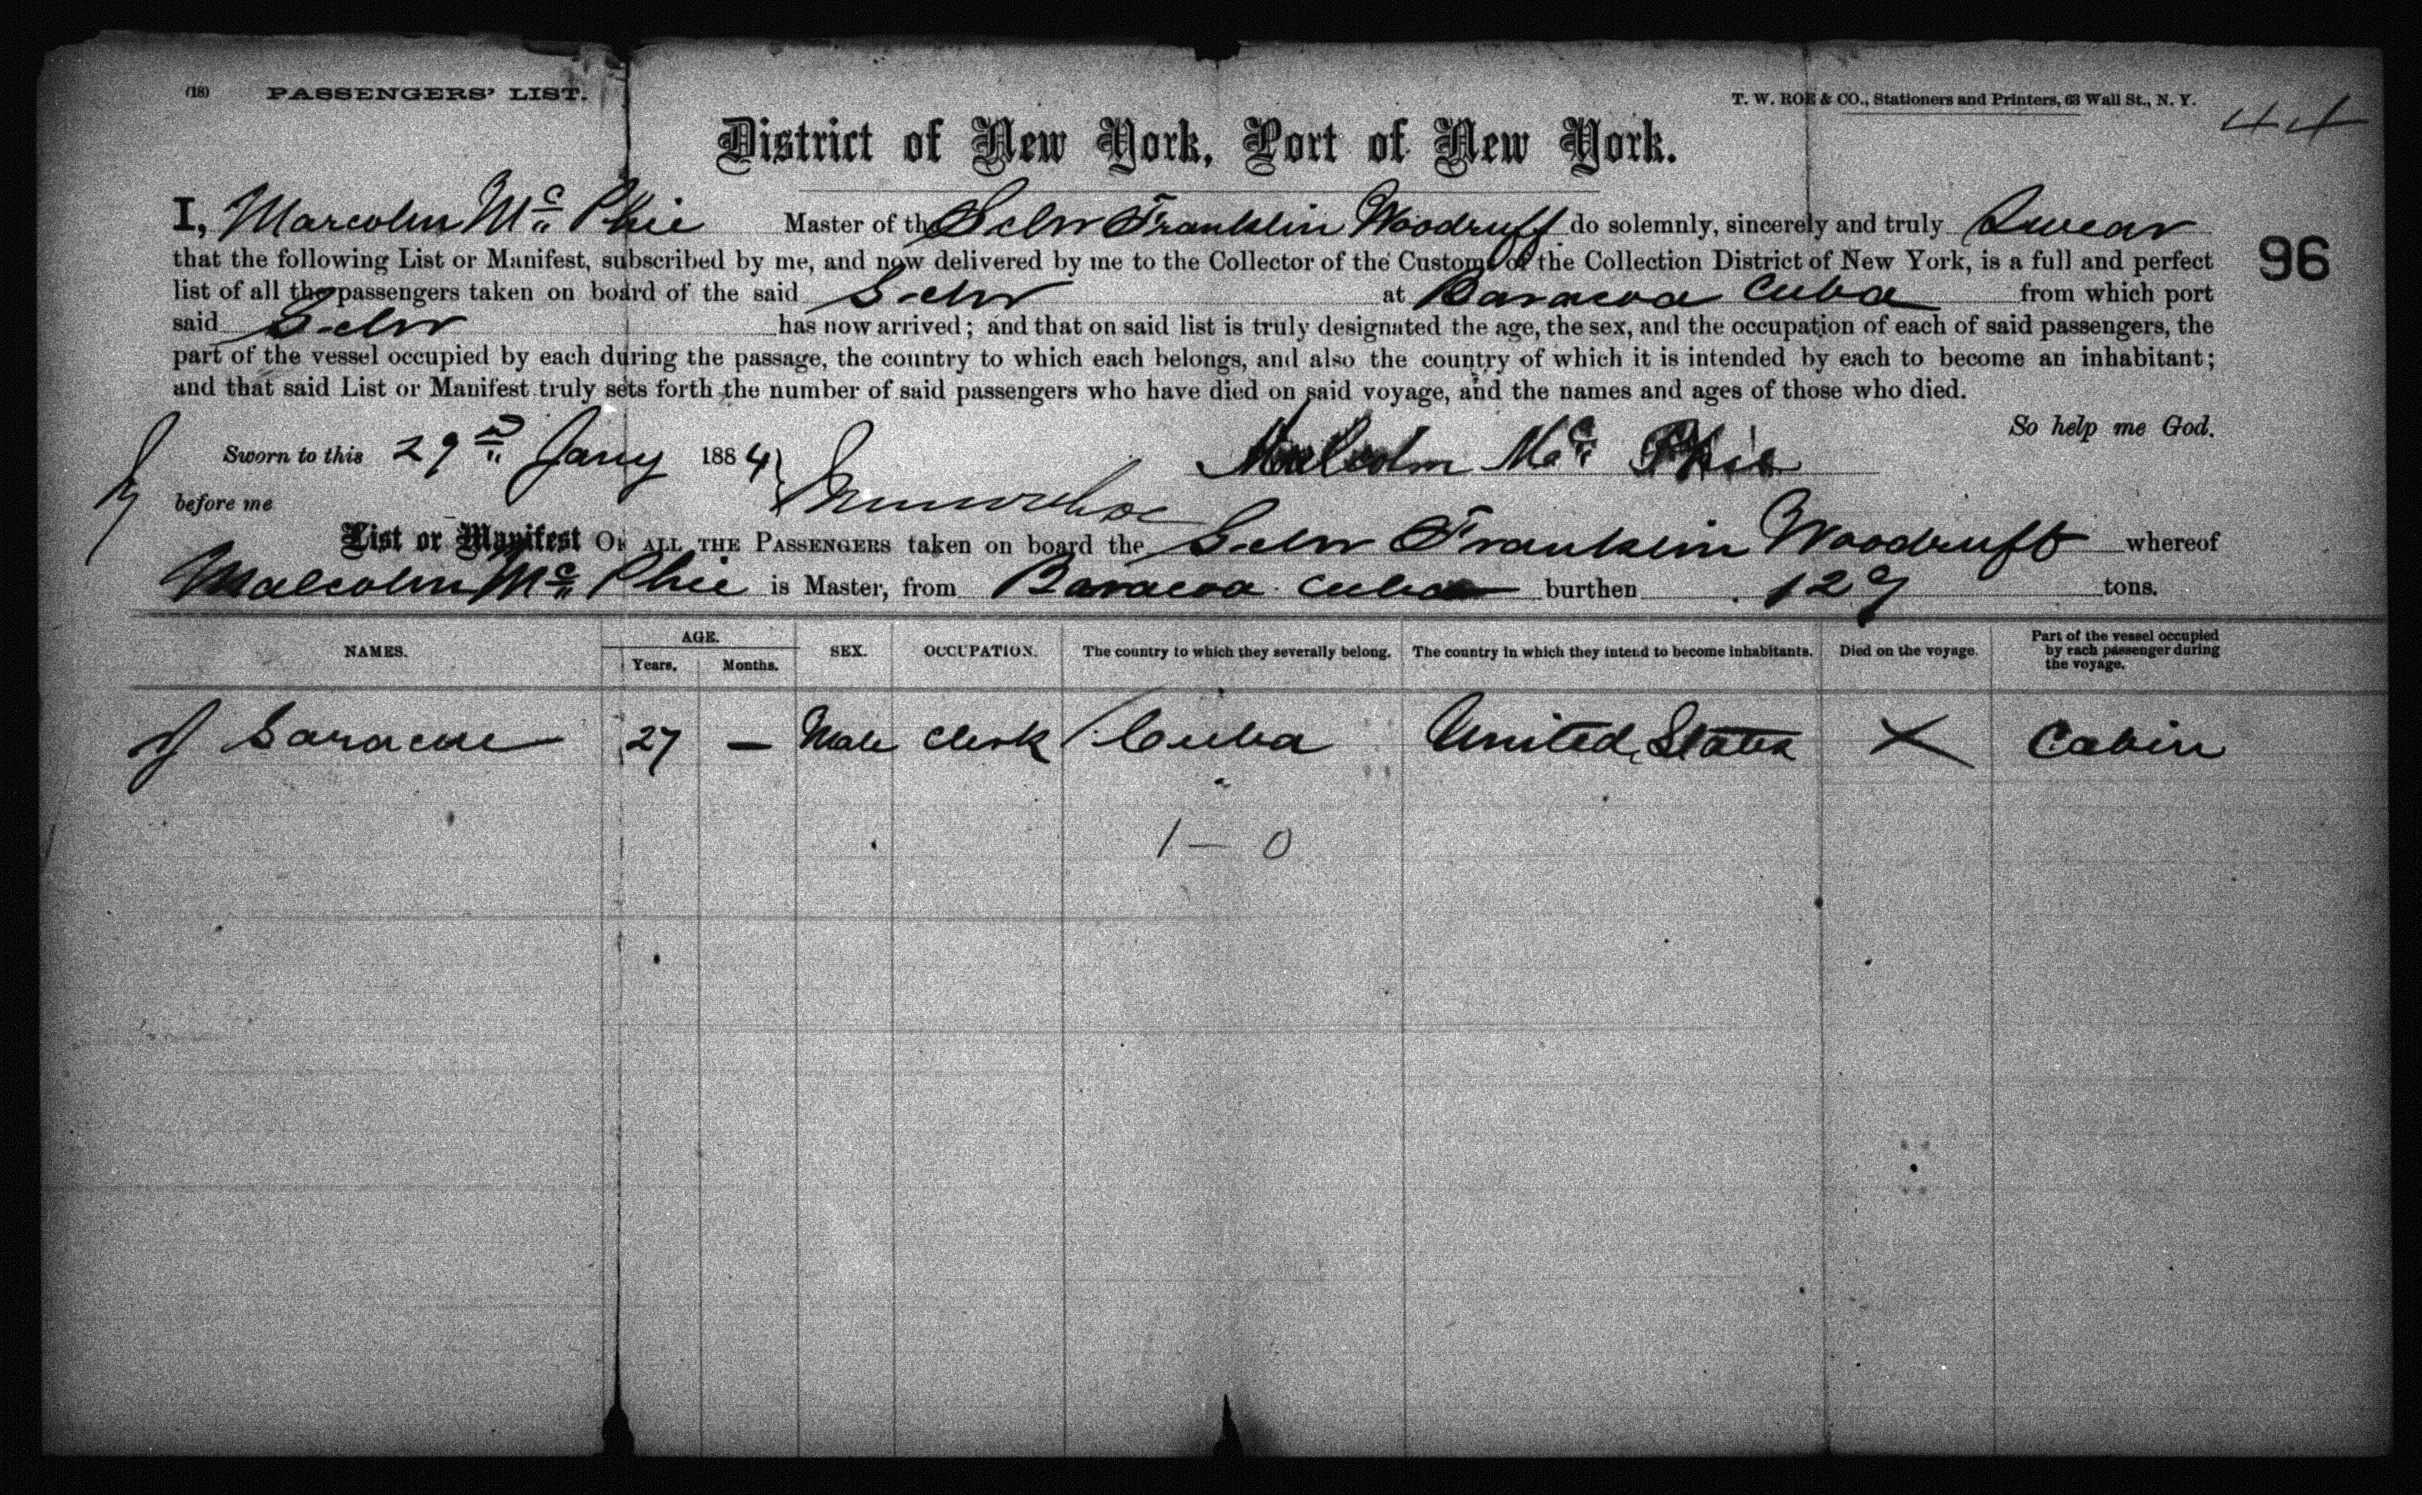 (18) PASSENGERS' LIST.
T. W. ROE & CO., Stationers and Printers, 63 Wall St., N. Y.
44
District of New York, Port of New York.
I, Marcolm Mc Phie Master of the Schr Franklin Woodruff do solemnly, sincerely and truly Swear
96
that the following List or Manifest, subscribed by me, and now delivered by me to the Collector of the Customs of the Collection District of New York, is a full and perfect
list of all the passengers taken on board of the said Schr at Baracoa Cuba from which port
said Schr has now arrived; and that on said list is truly designated the age, the sex, and the occupation of each of said passengers, the
part of the vessel occupied by each during the passage, the country to which each belongs, and also the country of which it is intended by each to become an inhabitant;
and that said List or Manifest truly sets forth the number of said passengers who have died on said voyage, and the names and ages of those who died.
So help me God.
Sworn to this 29th Jany 1884 Malcolm Mc Phie
before me
List or Manifest OF ALL THE PASSENGERS taken on board the Schr Franklin Woodruff whereof
Malcolm Mc Phie is Master, from Baracoa Cuba burthen 129 tons.
NAMES. AGE. Years. Months. SEX. OCCUPATION. The country to which they severally belong. The country in which they intend to become inhabitants. Died on the voyage. Part of the vessel occupied by each passenger during the voyage.
27 — Male Clerk Cuba United States X Cabin
1 — 0